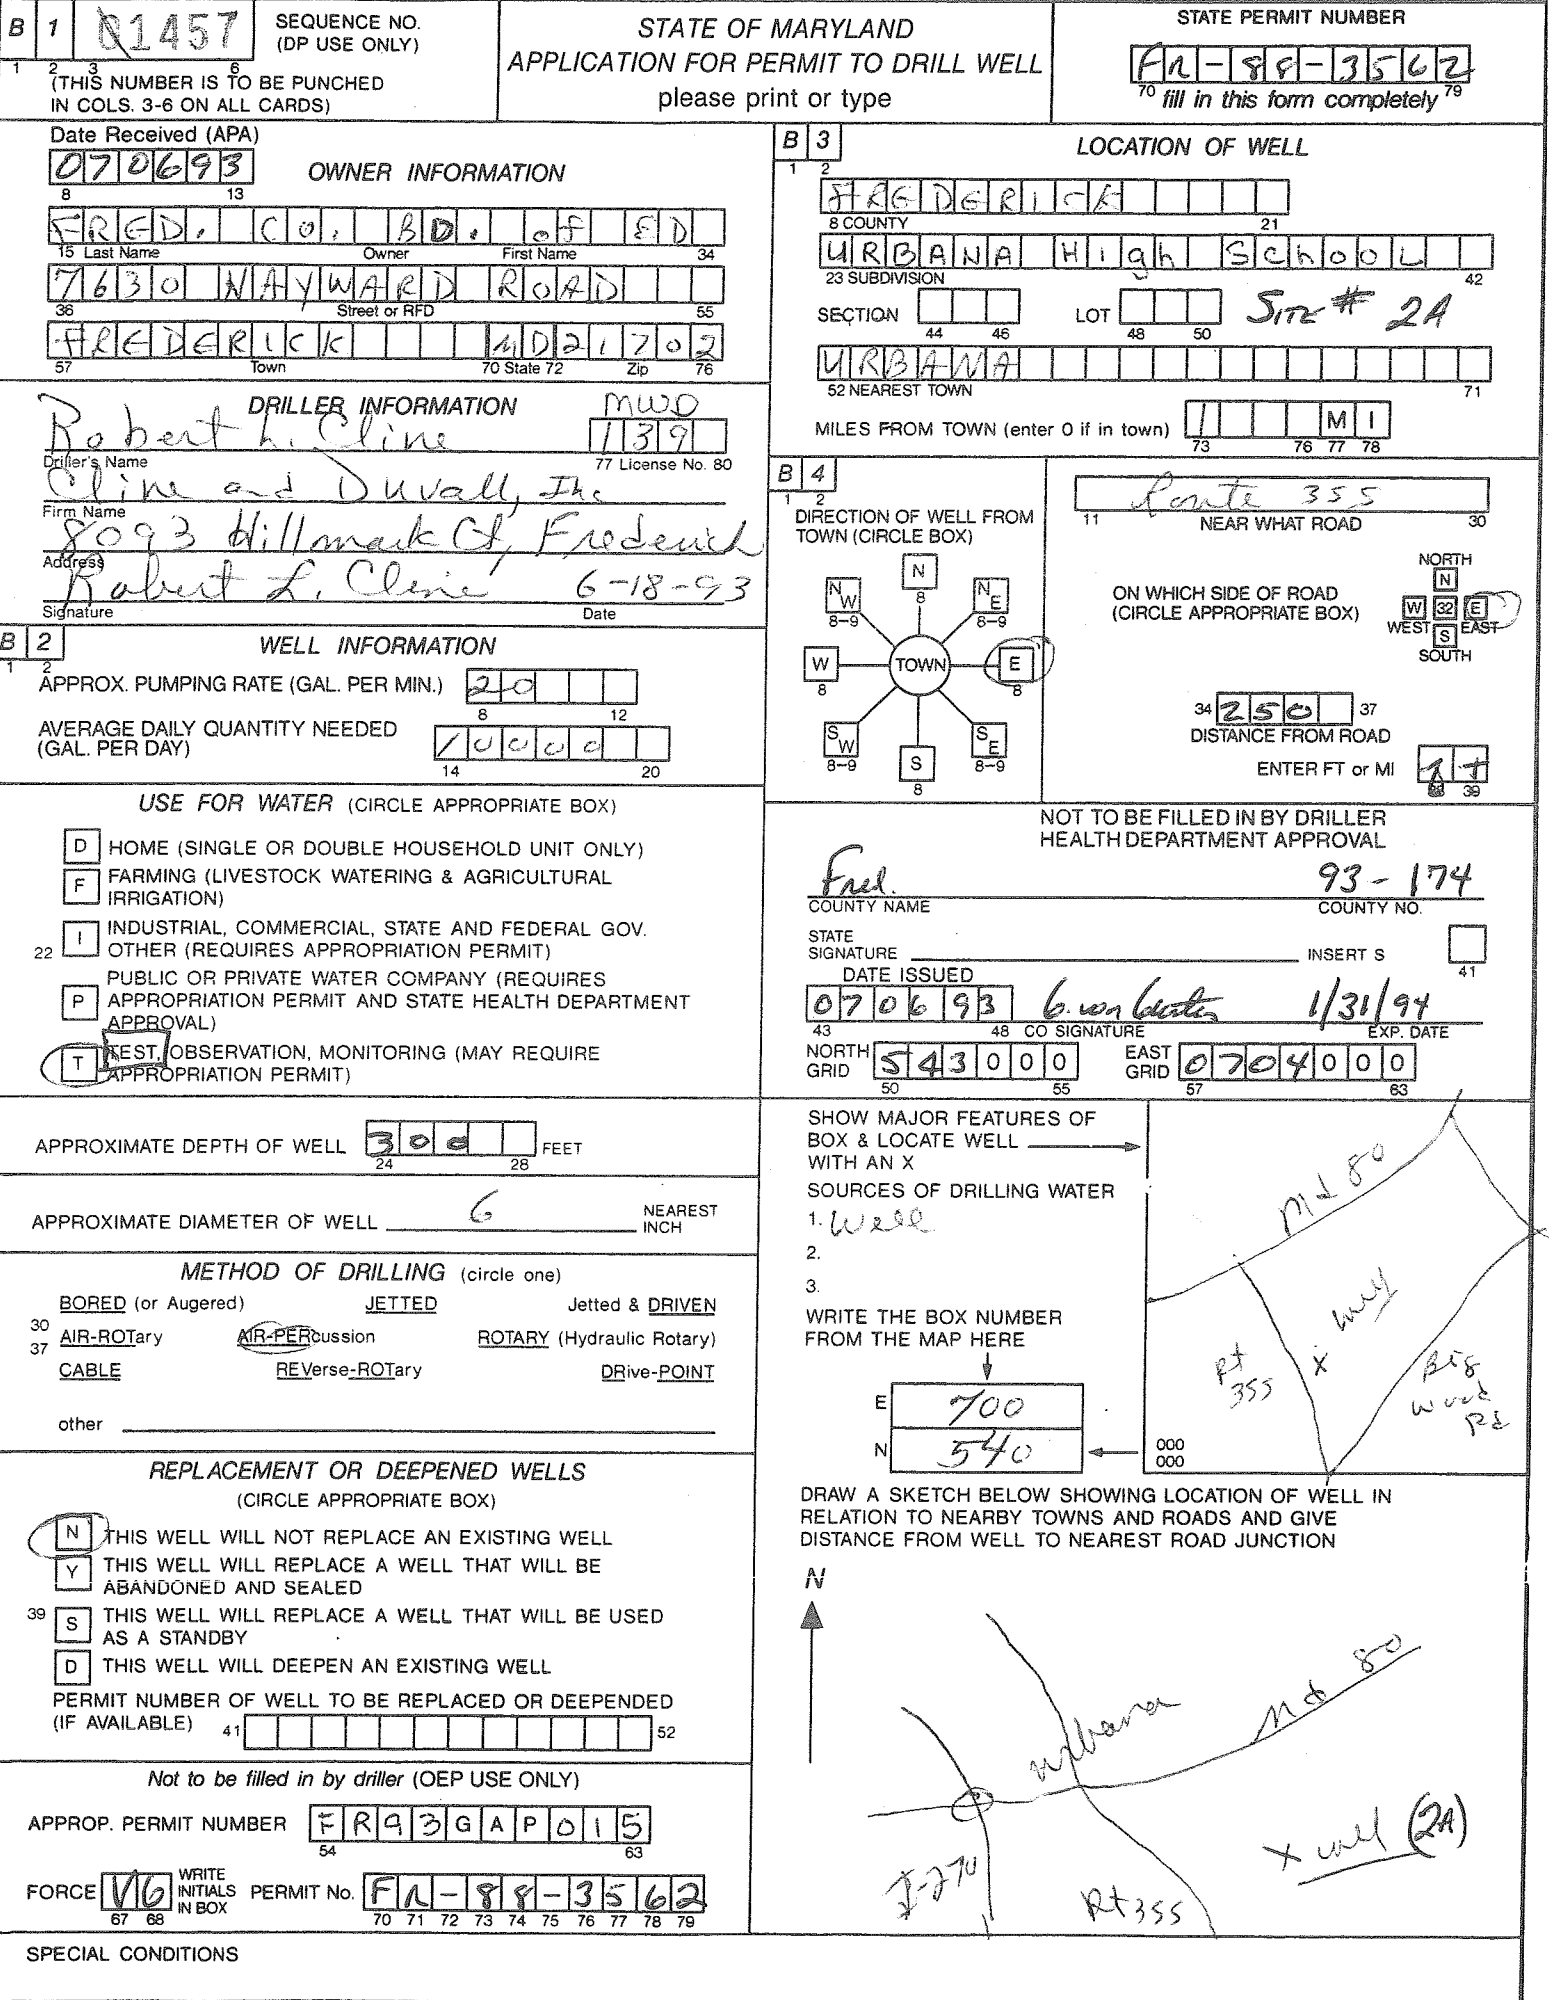 B 1 01457 SEQUENCE NO. (DP USE ONLY)
1 2 3 6
(THIS NUMBER IS TO BE PUNCHED
IN COLS. 3-6 ON ALL CARDS)
STATE OF MARYLAND
APPLICATION FOR PERMIT TO DRILL WELL
please print or type
STATE PERMIT NUMBER
FR-88-3562
70 fill in this form completely 79
Date Received (APA)
070693
8 13
OWNER INFORMATION
FRED. CO. BD. of ED
15 Last Name Owner First Name 34
7630 HAYWARD ROAD
36 Street or RFD 55
FREDERICK MD 21702
57 Town 70 State 72 Zip 76
DRILLER INFORMATION MWD
Robert L. Cline 139
Driller's Name 77 License No. 80
Cline and Duvall, Inc
Firm Name
8093 Hillmark Ct, Frederick
Address
Robert L. Cline 6-18-93
Signature Date
B 2 WELL INFORMATION
1 2
APPROX. PUMPING RATE (GAL. PER MIN.) 20
8 12
AVERAGE DAILY QUANTITY NEEDED
(GAL. PER DAY) 10000
14 20
USE FOR WATER (CIRCLE APPROPRIATE BOX)
D HOME (SINGLE OR DOUBLE HOUSEHOLD UNIT ONLY)
F FARMING (LIVESTOCK WATERING & AGRICULTURAL
IRRIGATION)
22 I INDUSTRIAL, COMMERCIAL, STATE AND FEDERAL GOV.
OTHER (REQUIRES APPROPRIATION PERMIT)
P PUBLIC OR PRIVATE WATER COMPANY (REQUIRES
APPROPRIATION PERMIT AND STATE HEALTH DEPARTMENT
APPROVAL)
T TEST, OBSERVATION, MONITORING (MAY REQUIRE
APPROPRIATION PERMIT)
APPROXIMATE DEPTH OF WELL 300 FEET
24 28
APPROXIMATE DIAMETER OF WELL 6 NEAREST
INCH
METHOD OF DRILLING (circle one)
BORED (or Augered) JETTED Jetted & DRIVEN
30
37 AIR-ROTary AIR-PERcussion ROTARY (Hydraulic Rotary)
CABLE REVerse-ROTary DRive-POINT
other
REPLACEMENT OR DEEPENED WELLS
(CIRCLE APPROPRIATE BOX)
N THIS WELL WILL NOT REPLACE AN EXISTING WELL
Y THIS WELL WILL REPLACE A WELL THAT WILL BE
ABANDONED AND SEALED
39 S THIS WELL WILL REPLACE A WELL THAT WILL BE USED
AS A STANDBY
D THIS WELL WILL DEEPEN AN EXISTING WELL
PERMIT NUMBER OF WELL TO BE REPLACED OR DEEPENDED
(IF AVAILABLE) 41 52
Not to be filled in by driller (OEP USE ONLY)
APPROP. PERMIT NUMBER FR93GAP015
54 63
FORCE VG WRITE INITIALS IN BOX PERMIT No. FR-88-3562
67 68 70 71 72 73 74 75 76 77 78 79
SPECIAL CONDITIONS
B 3 LOCATION OF WELL
1 2
FREDERICK
8 COUNTY 21
URBANA High School
23 SUBDIVISION 42
SECTION LOT SITE # 2A
44 46 48 50
URBANA
52 NEAREST TOWN 71
MILES FROM TOWN (enter 0 if in town) 1 MI
73 76 77 78
B 4
1 2
DIRECTION OF WELL FROM
TOWN (CIRCLE BOX)
N
8
NW NE
8-9 8-9
W TOWN E
8 8
SW SE
8-9 8-9
S
8
Route 355
11 NEAR WHAT ROAD 30
ON WHICH SIDE OF ROAD
(CIRCLE APPROPRIATE BOX)
NORTH
N
W 32 E
WEST EAST
S
SOUTH
34 250 37
DISTANCE FROM ROAD
ENTER FT or MI FT
39
NOT TO BE FILLED IN BY DRILLER
HEALTH DEPARTMENT APPROVAL
Fred. 93-174
COUNTY NAME COUNTY NO.
STATE
SIGNATURE INSERT S
41
DATE ISSUED
070693 1/31/94
43 48 CO SIGNATURE EXP. DATE
NORTH GRID 543000 EAST GRID 0704000
50 55 57 63
SHOW MAJOR FEATURES OF
BOX & LOCATE WELL
WITH AN X
SOURCES OF DRILLING WATER
1. Well
2.
3.
WRITE THE BOX NUMBER
FROM THE MAP HERE
E 700
N 540
000
000
Md 80
Rt 355
X
Big Wood Rd
DRAW A SKETCH BELOW SHOWING LOCATION OF WELL IN
RELATION TO NEARBY TOWNS AND ROADS AND GIVE
DISTANCE FROM WELL TO NEAREST ROAD JUNCTION
N
Urbana
Md 80
X well (2A)
I-270
Rt 355